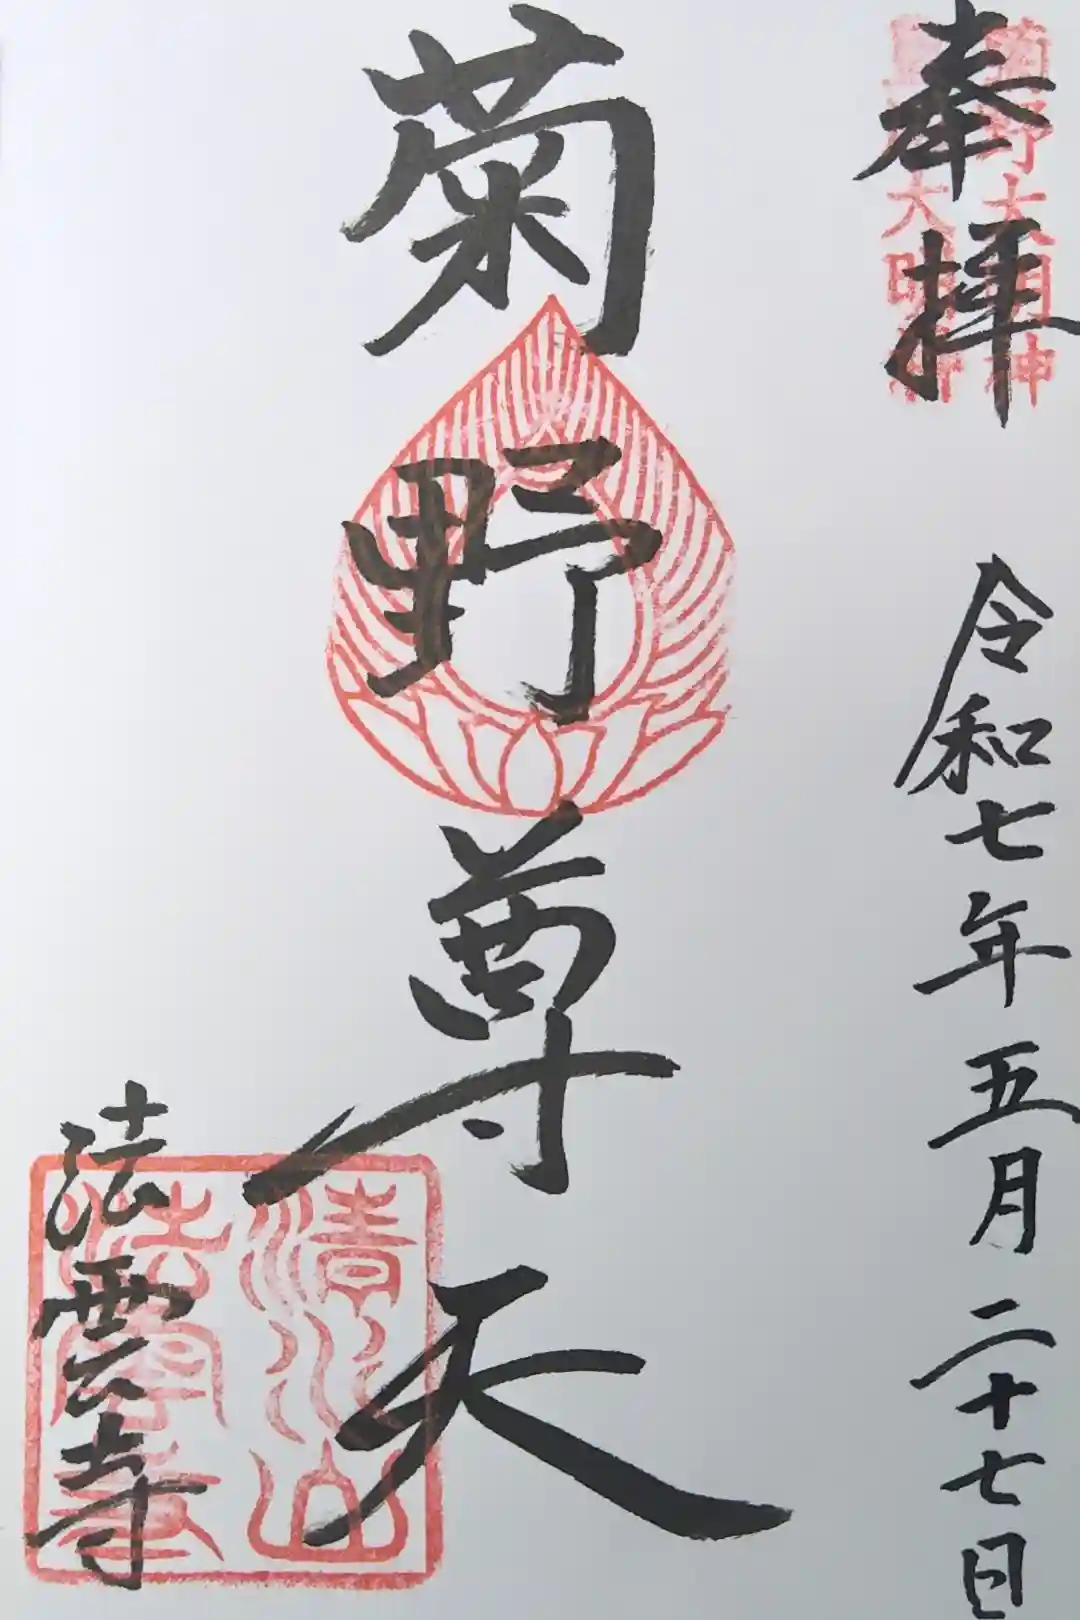 奉拝
菊野大明神
大明神
令和七年五月二十七日
菊野尊天
法雲寺
清水山
法雲寺